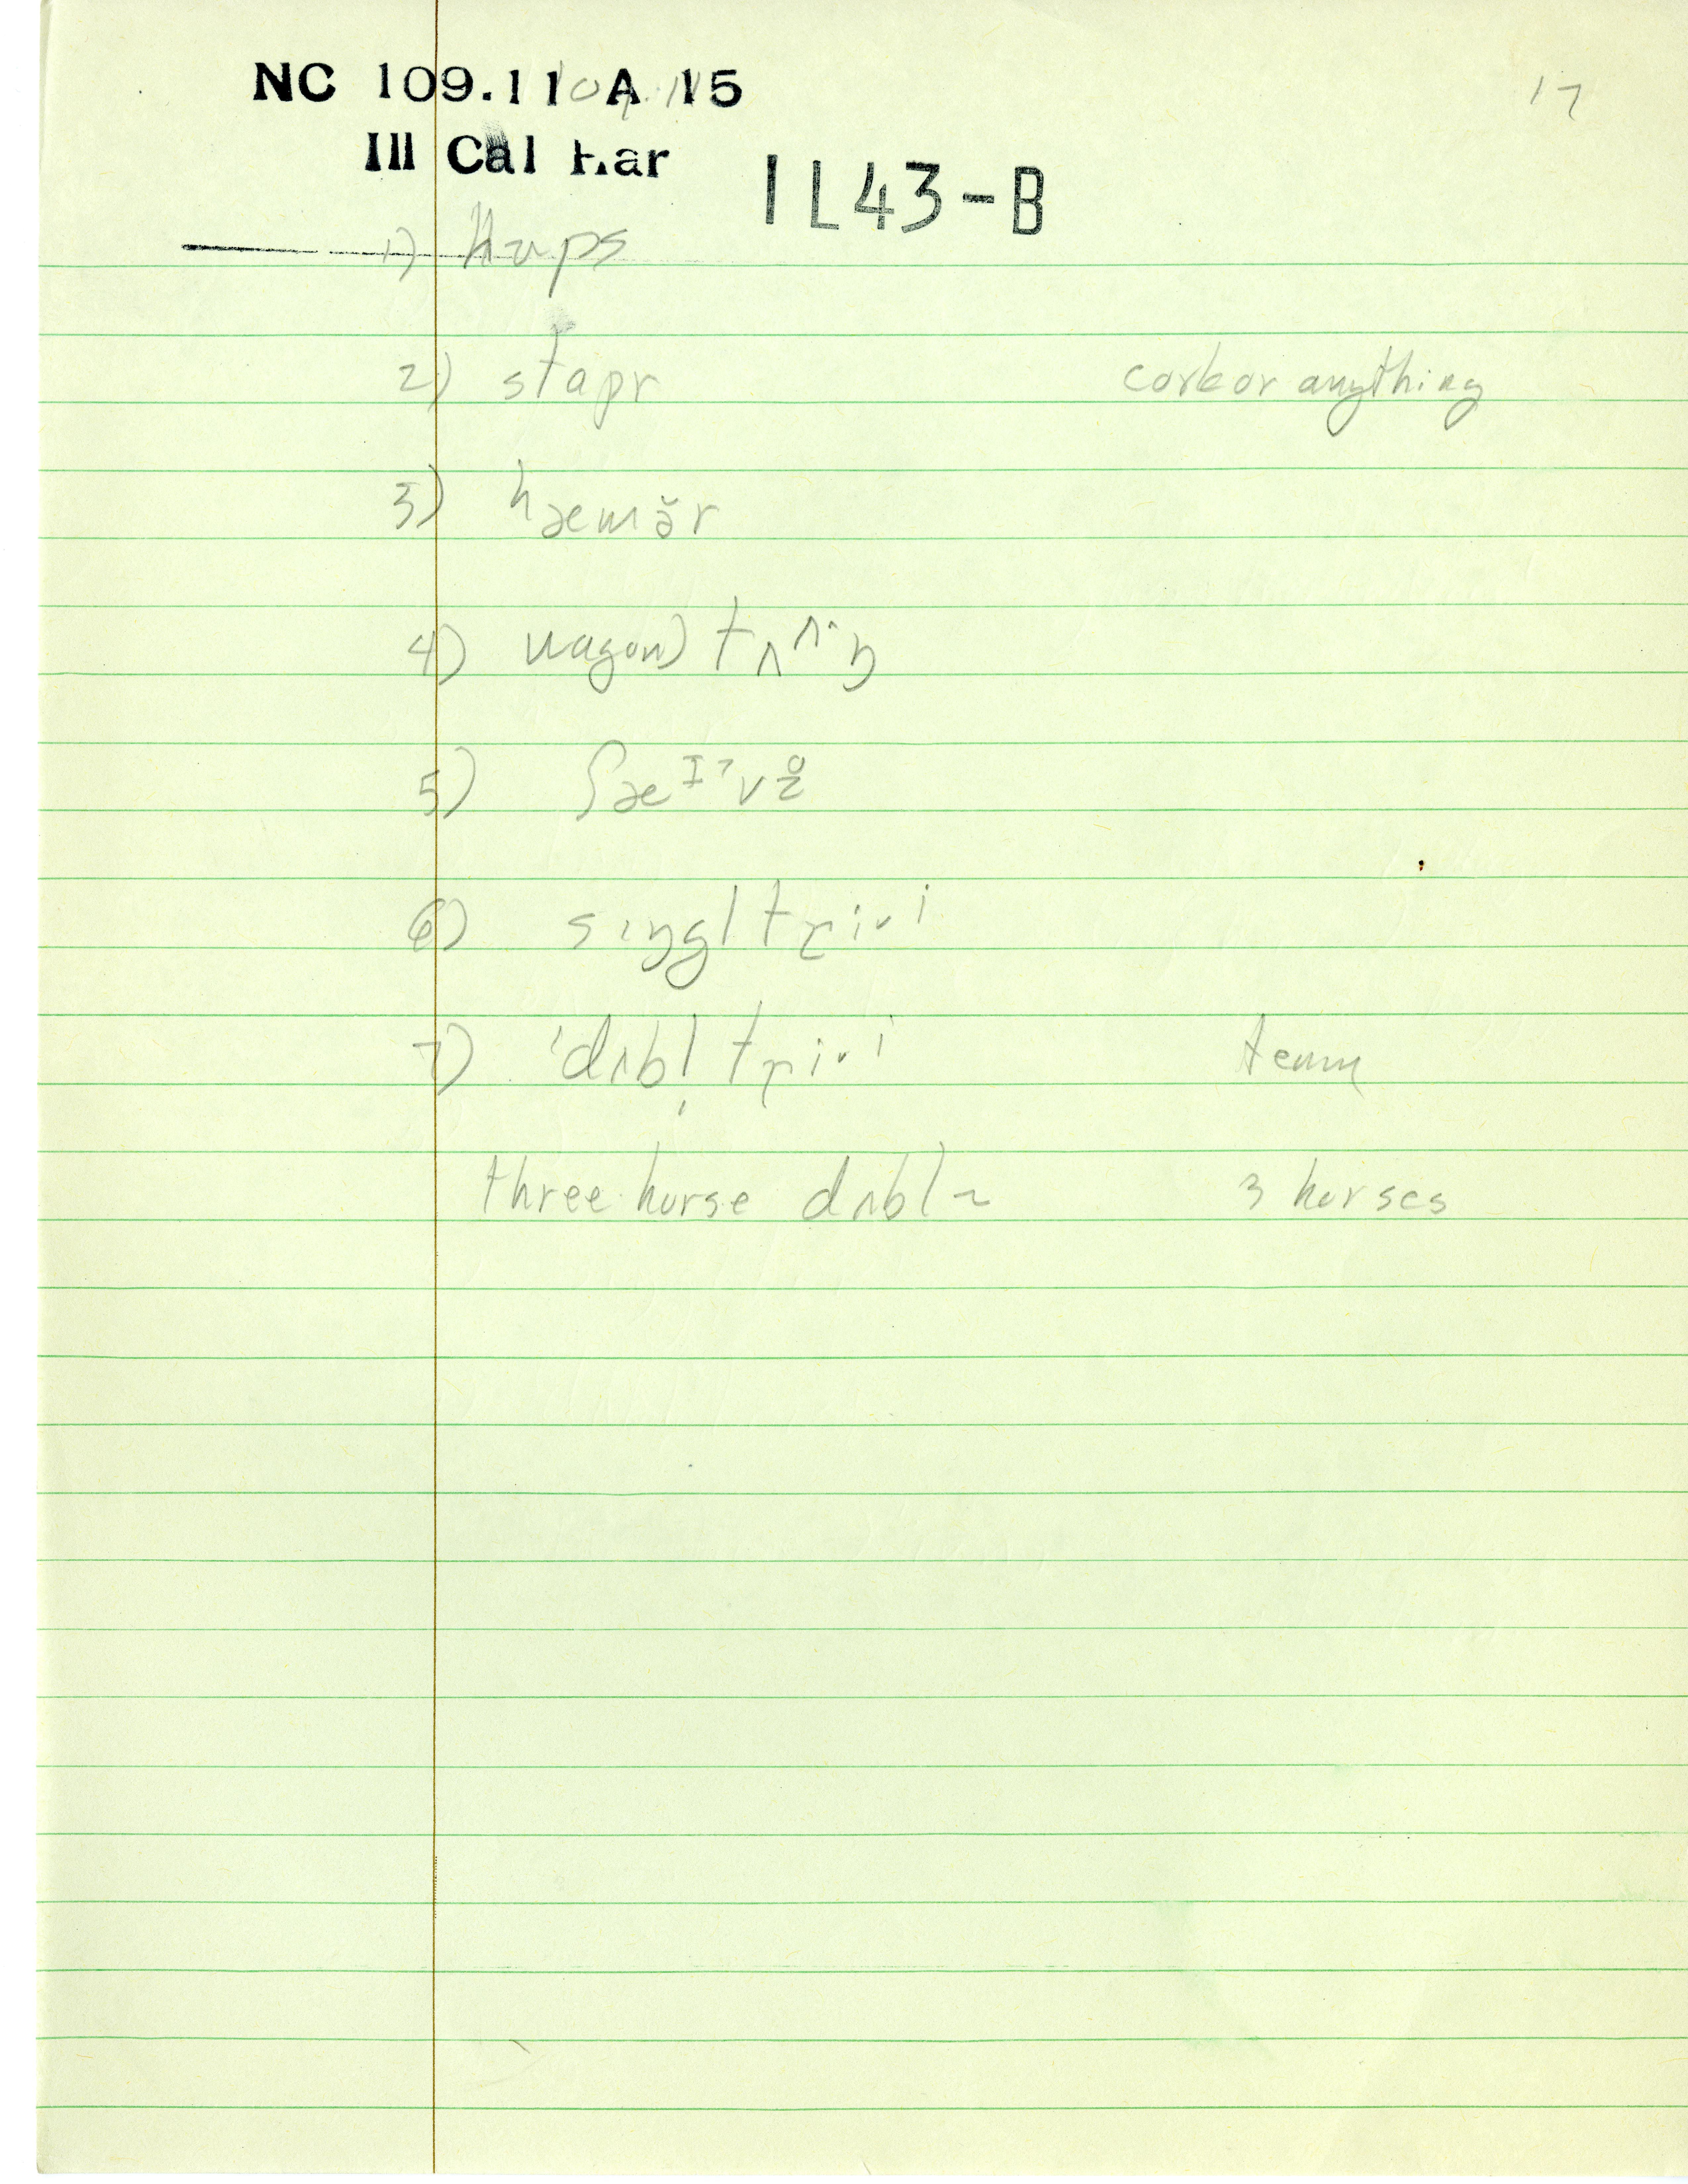 NC 109.110A.15 17
Ill Cal Har 1L43-B
1) hups
2) stapr cork or anything
3) hæmə̆r
4) wagon) tʌʌ·ŋ
5) ʃæɪˀvz̥
6) sɪŋgl tri·i
7) 'dʌbl̩ tri·i team
three horse dʌbl~ 3 horses